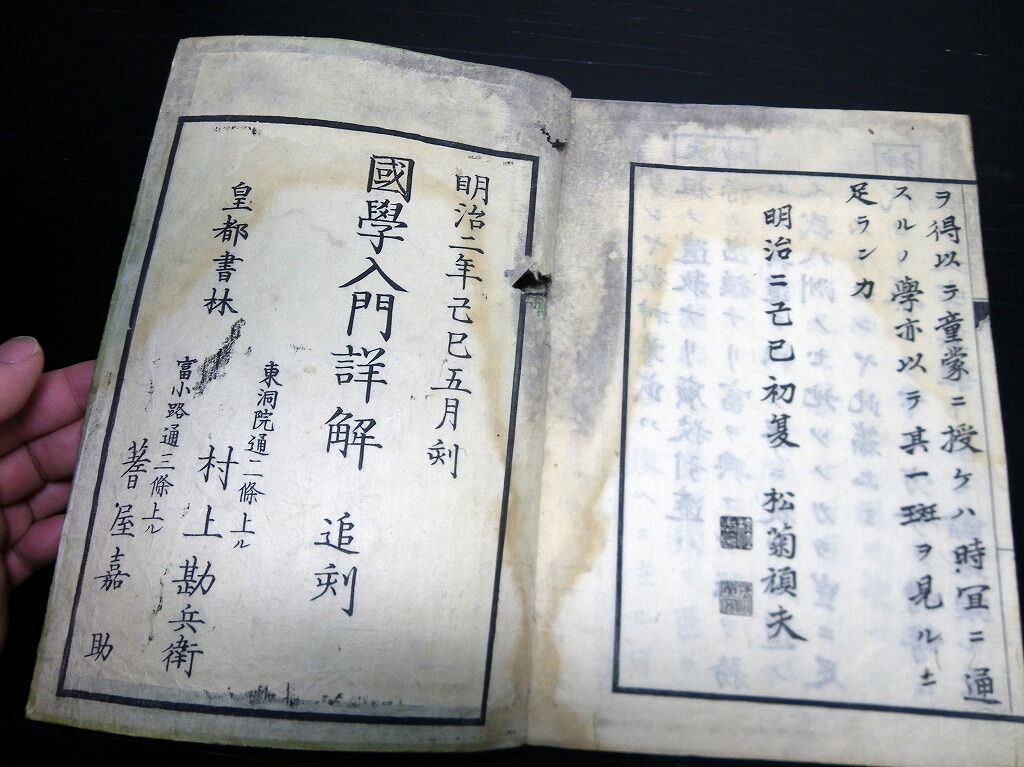 ヲ得以テ童蒙ニ授ケハ時宜ニ通
スルノ學亦以テ其一斑ヲ見ルニ
足ランカ
明治二己巳初夏 松菊禎夫
明治二年己巳五月刻
國學入門詳解 追刻
皇都書林
東洞院通二條上ル
村上勘兵衛
富小路通三條上ル
蓍屋嘉助